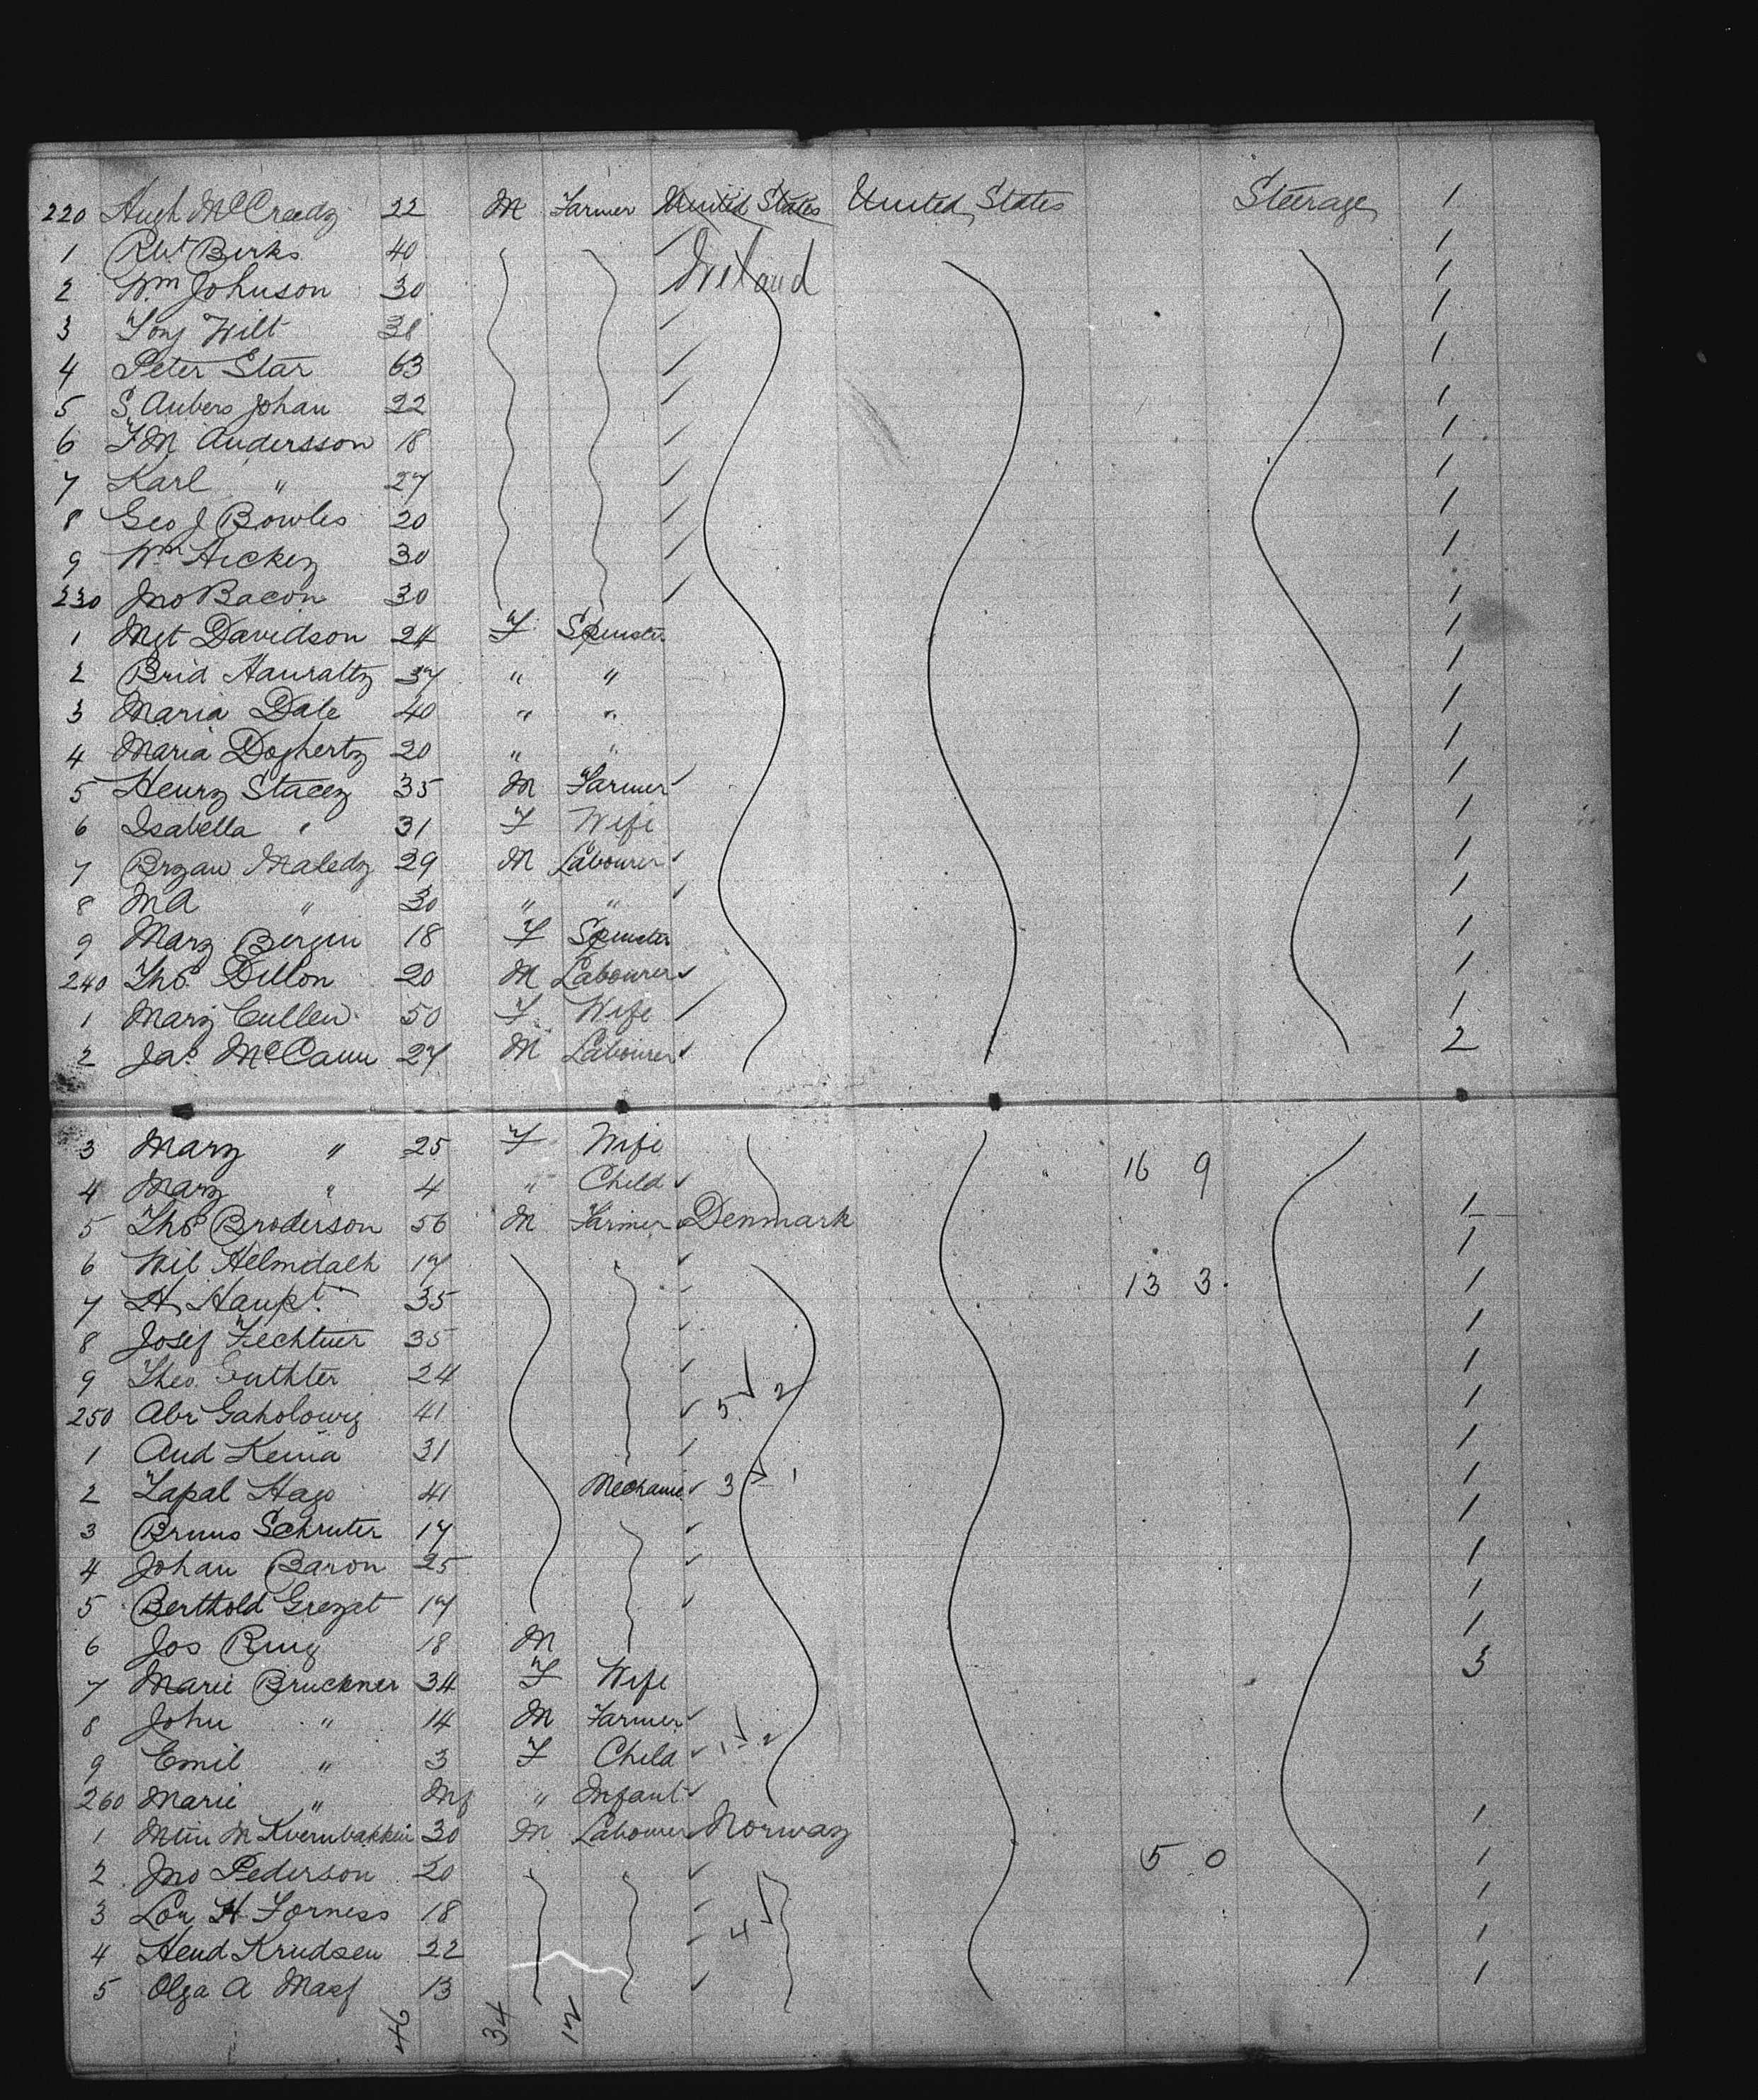 220 Hugh McCreedy 22 M Farmer United States United States Steerage 1
1 Rbt Birks 40 Ireland 1
2 Wm Johnson 30 1
3 Tony Wilt 38 1
4 Peter Star 63 1
5 S. Aubers Johan 22 1
6 F M Andersson 18 1
7 Karl " 27 1
8 Geo J Bowles 20 1
9 Wm Hickey 30 1
230 Jno Bacon 30 1
1 Mgt Davidson 24 F Spinster 1
2 Brid Hanratty 37 " " 1
3 Maria Dale 40 " " 1
4 Maria Dogherty 20 " " 1
5 Henry Stacey 35 M Farmer 1
6 Isabella " 31 F Wife 1
7 Bryan Maledy 29 M Labourer 1
8 MA " 30 " " 1
9 Mary Bergin 18 F Spinster 1
240 Thos Dillon 20 M Labourer 1
1 Mary Cullen 50 F Wife 1
2 Jas McCann 27 M Labourer 2
3 Mary " 25 F Wife
4 Mary " 4 " Child 16 9
5 Thos Broderson 56 M Farmer Denmark 1
6 Wil Helmdach 17 1
7 H. Haupt 35 13 3 1
8 Josef Fechtner 35 1
9 Theo 24 1
250 Abr 41 5 2 1
1 Aud 31 1
2 41 Mechanic 3 1 1
3 Bruno Schruter 17 1
4 Johan Baron 25 1
5 Berthold 17 1
6 Jos Ring 18 M 1
7 Marie Bruckner 34 F Wife 3
8 John " 14 M Farmer
9 Emil " 3 F Child 1 2
260 Marie " Inf " Infant
1 M Kvernbakken 30 M Labourer Norway 1
2 Jno Pederson 20 5 0 1
3 H Forness 18 1
4 Hend Knudsen 22 4 1
5 Olga A 13 1
46 34 12